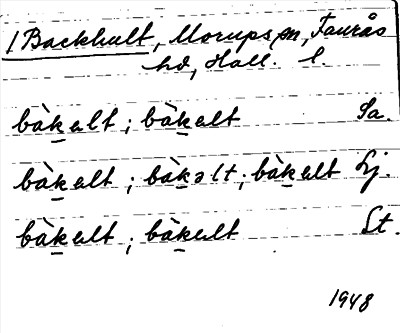 1 Backhult, Morups sn, Faurås
hd, Hall. l.
bàkalt; bàkalt Sa.
bàkalt; bàkəlt; bàkalt Lj.
bàkalt; bàkult St.
1948